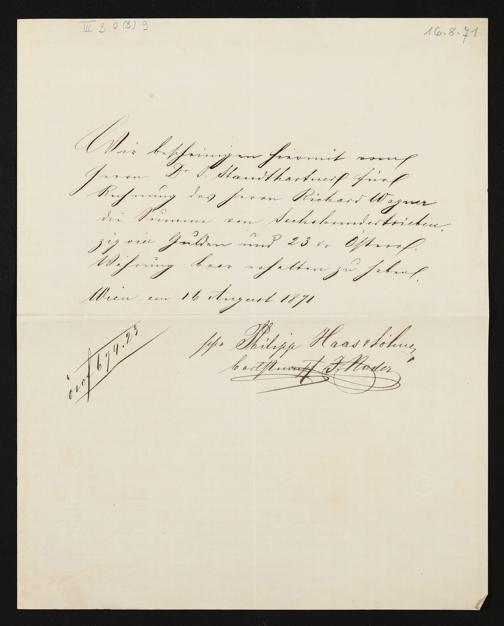 III B 9 (3) 9
16.8.71
Wir bescheinigen hiermit vom
Herrn Dr. J. Standhartner für
Rechnung des Herrn Richard Wagner
die Summe von Sechshundertsieben-
zigvier Gulden und 23 kr Österr.
Währung baar erhalten zu haben.
Wien am 16 August 1871
ppa Philipp Haas & Söhne
F. Rader
674.23